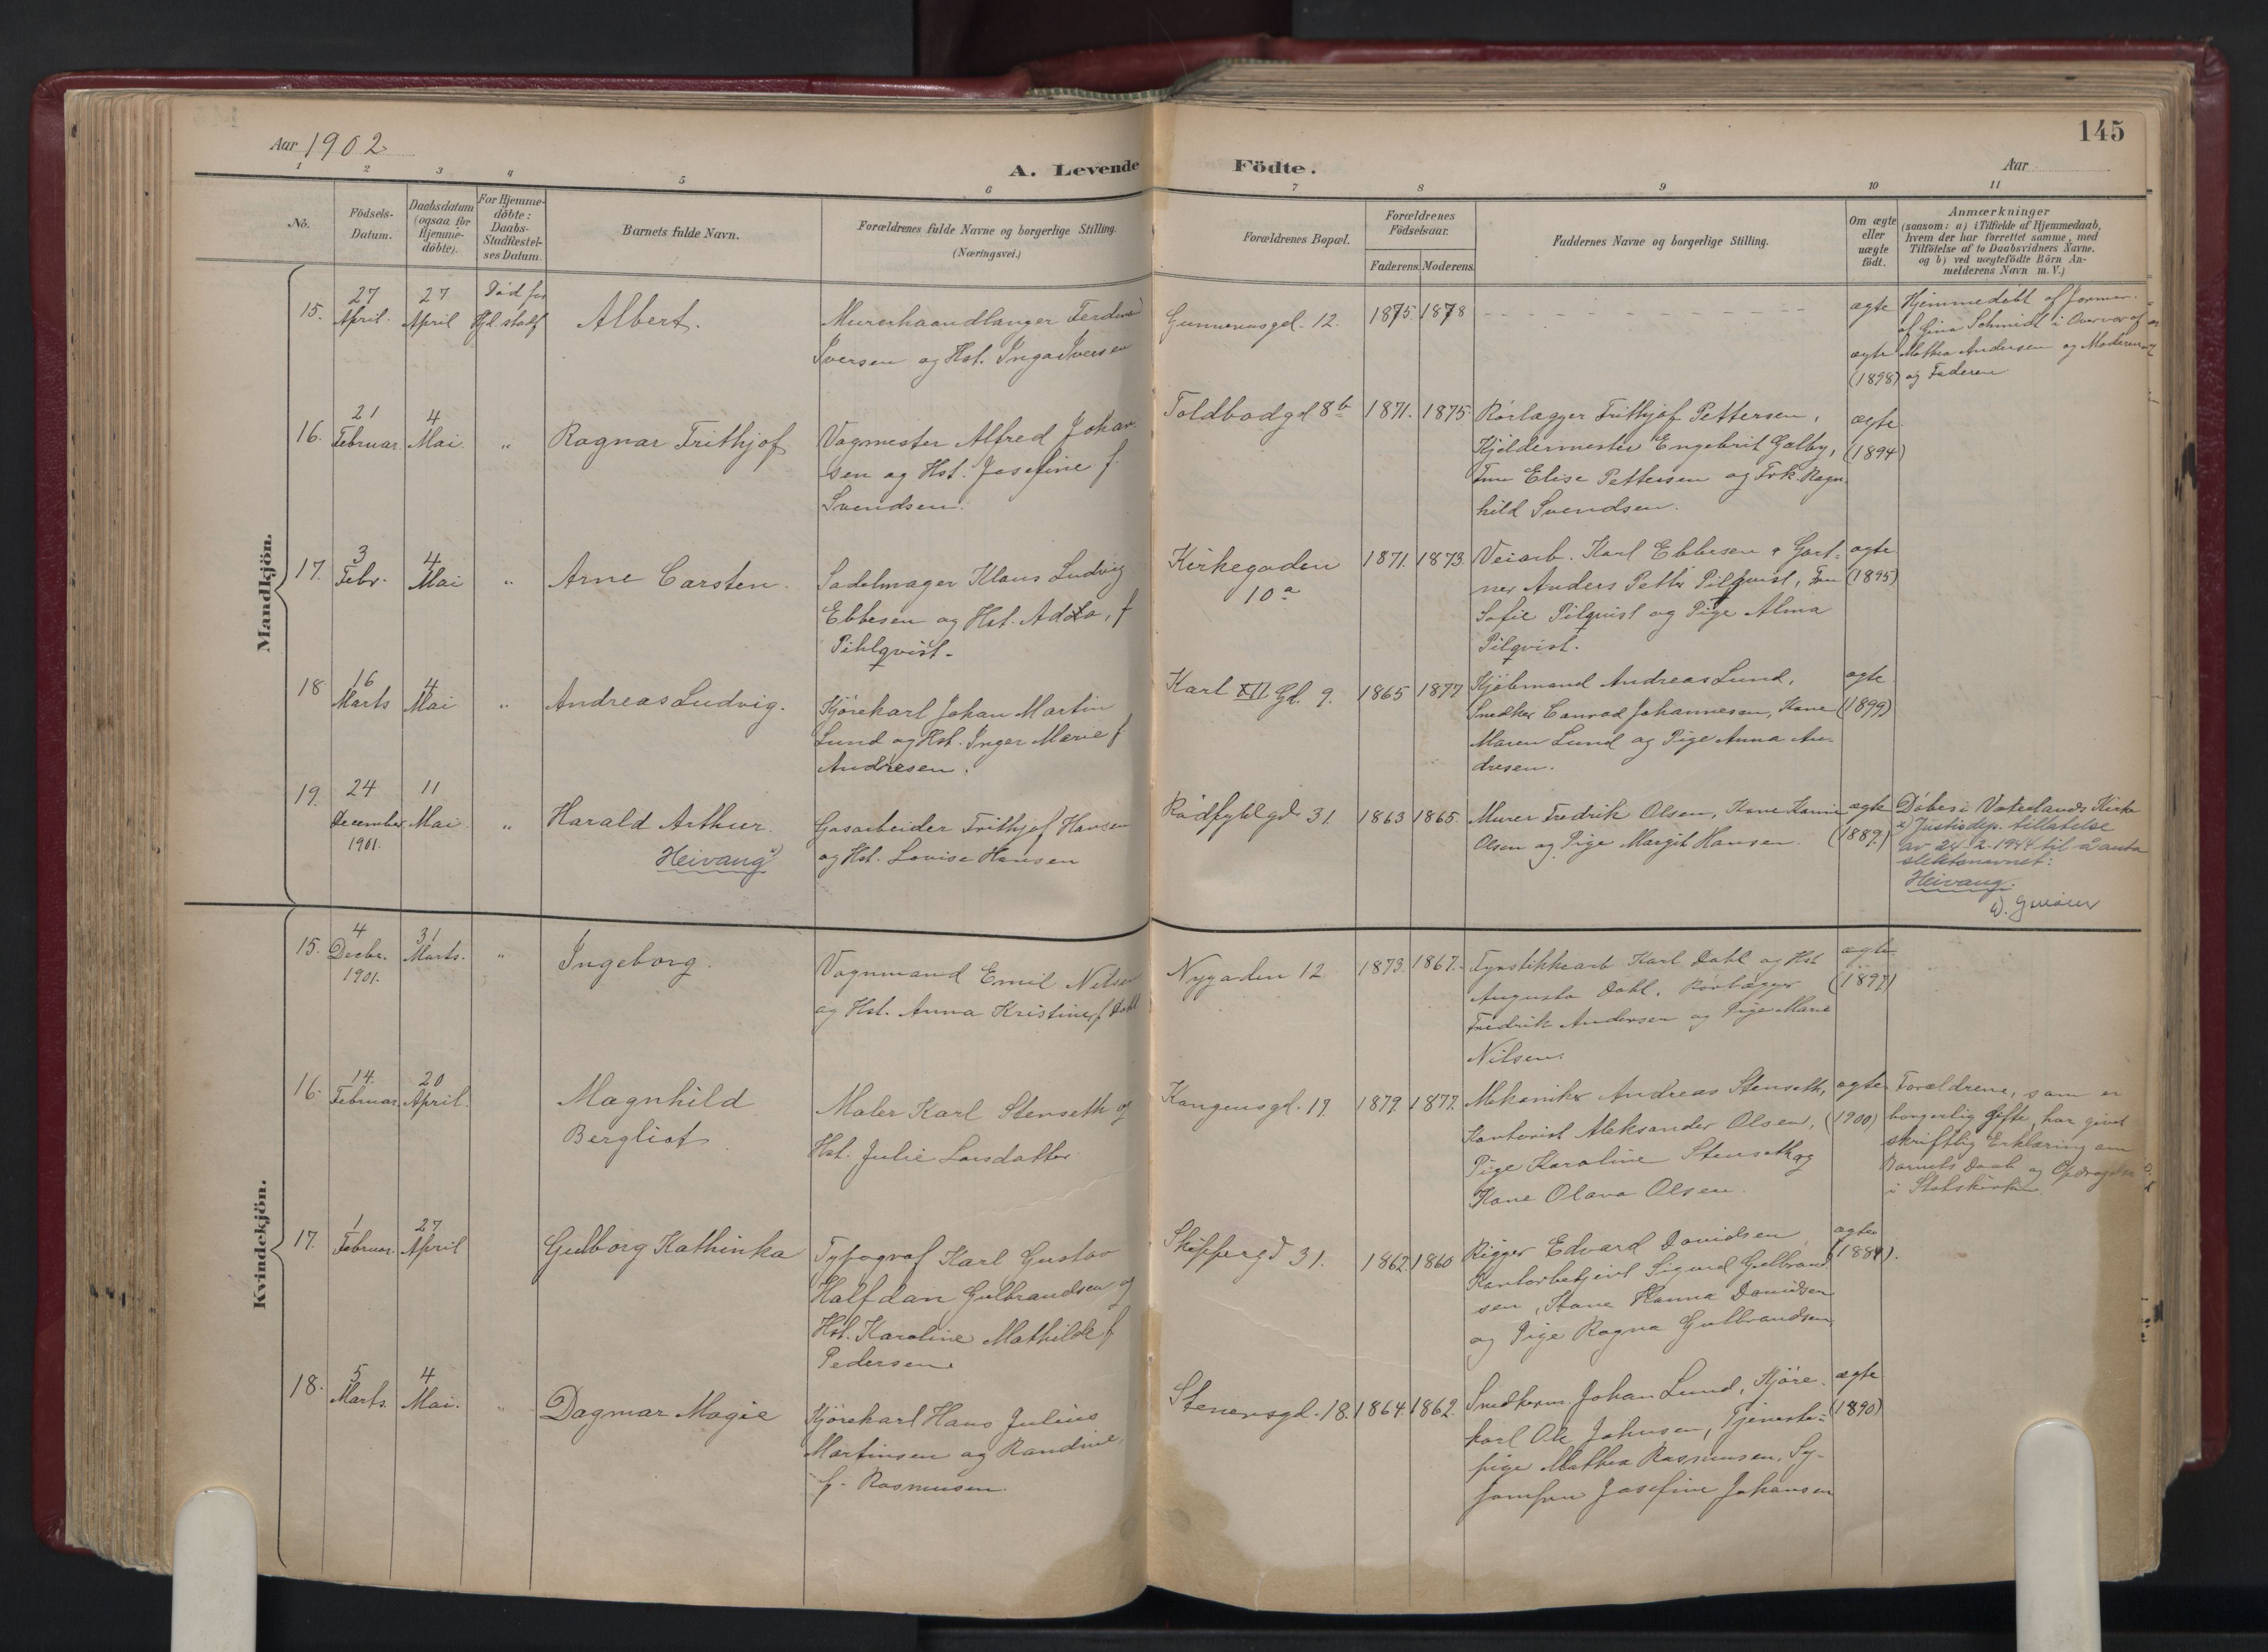 145
Aar 1902
A. Levende Födte.
Aar
1 2 3 4 5 6 7 8 9 10 11
No.
Födsels-Datum.
Daabsdatum (ogsaa for Hjemme-döbte).
For Hjemme-döbte: Daabs-Stadfæstel-ses Datum.
Barnets fulde Navn.
Forældrenes fulde Navne og borgerlige Stilling.
(Næringsvei.)
Forældrenes Bopæl.
Forældrenes Födselsaar.
Faderens Moderens
Faddernes Navne og borgerlige Stilling.
Om ægte eller uægte födt.
Anmærkninger
(saasom: a) i Tilfælde af Hjemmedaab,
hvem der har forrettet samme, med
Tilföielse af to Daabsvidners Navne.
og b) ved uægtefödte Börn An-
melderens Navn m. V.)
Mandkjön.
15.
27 April.
27 April
Död før Hjd. stadf
Albert.
Murerhaandlanger Ferdinand
Iversen og Hst. Inga Iversen
Gunnerusgd. 12.
1875 1878
ægte
ægte
(1898)
Hjemmedøbt af
af Gina Schmidt i Overvær af
Mathea Andersen og Moderen
og Faderen
16.
21 Februar.
4 Mai
"
Ragnar Frithjof
Vognmester Alfred Johan-
sen og Hst. Josefine f.
Svendsen.
Toldbodgd 8b
1871. 1875
Rørlægger Frithjof Pettersen,
Kjeldermester Engebrit Galby,
Fru Elise Pettersen og Frk. Ragn-
hild Svendsen.
ægte
(1894)
17.
3 Febr.
4 Mai
"
Arne Carsten.
Sadelmager Klaus Ludvig
Ebbesen og Hst. Adda, f
Pihlqvist.
Kirkegaden
10a
1871. 1873.
Veiarb. Karl Ebbesen, Gart-
ner Anders Petter Pilqvist, Fru
Sofie Pilqvist og Pige Alma
Pilqvist.
ægte
(1895)
18
16 Marts
4 Mai
"
Andreas Ludvig.
Kjørekarl Johan Martin
Lund og Hst. Inger Marie f.
Andresen.
Karl XII Gd. 9.
1865 1877
Kjøbmand Andreas Lund,
Snedker Conrad Johannesen, Kone
Maren Lund og Pige Anna An-
dresen.
ægte
(1899)
19.
24 December 1901.
11 Mai
"
Harald Arthur.
Heivang x)
Gasarbeider Frithjof Hansen
og Hst. Lovise Hansen
Rødfyldgd 31.
1863 1865.
Murer Fredrik Olsen, Kone
Olsen og Pige Margit Hansen.
ægte
(1889.)
Døbes i Vaterlands Kirke
x) Justisdep. tillatelse
av 24-2-1944 til å anta
slektsnavnet:
Heivang.
Kvindekjön.
15.
4 Decbr. 1901.
31 Marts.
"
Ingeborg.
Vognmand Emil Nilsen
og Hst. Anna Kristine f Dahl
Nygaden 12
1873. 1867.
Fyrstikkearb Karl Dahl og Hst
Augusta Dahl, Rørlægger
Fredrik Andersen og Pige Marie
Nilsen.
ægte
(1897)
16.
14. Februar.
20 April.
Magnhild
Bergliot
Maler Karl Stenseth og
Hst. Julie Larsdatter
Kongensgd. 19.
1879. 1877.
Mekaniker Andreas Stenseth,
Kontorist Aleksander Olsen,
Pige Karoline Stenseth og
Kone Olava Olsen.
ægte
(1900)
Forældrene, som er
borgerlig gifte, har givet
skriftlig Erklæring om
Barnets Daab og Opdragelse
i Statskirken.
17.
1 Februar.
27 April
Gulborg Kathinka
Typograf Karl Gustav
Halfdan Gulbrandsen og
Hst. Karoline Mathilde f
Pedersen
Skippergd 31.
1862 1860
Rigger Edvard Davidsen
Kontorbetjent Sigurd Gulbrand-
sen, Kone Hanna Davidsen
og Pige Ragna Gulbrandsen
ægte
(1884).
18.
5 Marts.
4 Mai.
"
Dagmar Magie
Kjørekarl Hans Julius
Martinsen og Randine
f. Rasmussen.
Stenersgd. 18.
1864 1862.
Snedkerm Johan Lund, Kjøre-
karl Ole Johnsen, Tjeneste-
pige Mathea Rasmussen, Sy-
jomfru Josefine Johansen
ægte
(1890)